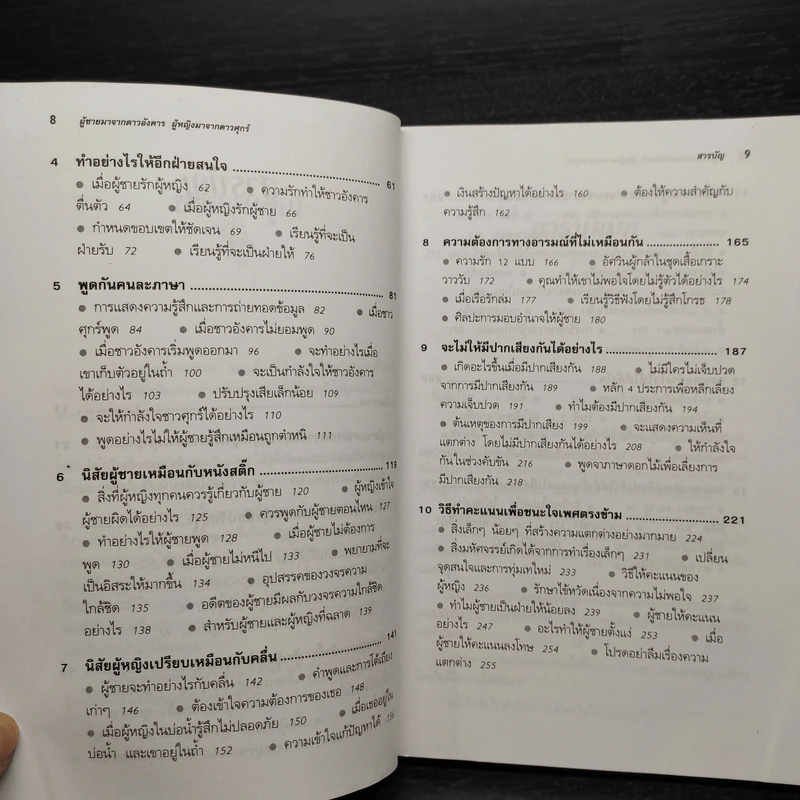 8 ผู้ชายมาจากดาวอังคาร ผู้หญิงมาจากดาวศุกร์
4 ทำอย่างไรให้อีกฝ่ายสนใจ ........................................ 61
● เมื่อผู้ชายรักผู้หญิง 62 ● ความรักทำให้ชาวอังคาร
ตื่นตัว 64 ● เมื่อผู้หญิงรักผู้ชาย 66
● กำหนดขอบเขตให้ชัดเจน 69 ● เรียนรู้ที่จะเป็น
ฝ่ายรับ 72 ● เรียนรู้ที่จะเป็นฝ่ายให้ 76
5 พูดกันคนละภาษา ........................................ 81
● การแสดงความรู้สึกและการถ่ายทอดข้อมูล 82 ● เมื่อชาว
ศุกร์พูด 84 ● เมื่อชาวอังคารไม่ยอมพูด 90
● เมื่อชาวอังคารเริ่มพูดออกมา 96 ● จะทำอย่างไรเมื่อ
เขาเก็บตัวอยู่ในถ้ำ 100 ● จะเป็นกำลังใจให้ชาวอังคาร
ได้อย่างไร 103 ● ปรับปรุงเสียเล็กน้อย 109
● จะให้กำลังใจชาวศุกร์ได้อย่างไร 110
● พูดอย่างไรไม่ให้ผู้ชายรู้สึกเหมือนถูกตำหนิ 111
6 นิสัยผู้ชายเหมือนกับหนังสติ๊ก ........................................ 119
● สิ่งที่ผู้หญิงทุกคนควรรู้เกี่ยวกับผู้ชาย 120 ● ผู้หญิงเข้าใจ
ผู้ชายผิดได้อย่างไร 125 ● ควรพูดกับผู้ชายตอนไหน 127
● ทำอย่างไรให้ผู้ชายพูด 128 ● เมื่อผู้ชายไม่ต้องการ
พูด 130 ● เมื่อผู้ชายไม่หนีไป 133 ● พยายามที่จะ
เป็นอิสระให้มากขึ้น 134 ● อุปสรรคของวงจรความ
ใกล้ชิด 135 ● อดีตของผู้ชายมีผลกับวงจรความใกล้ชิด
อย่างไร 138 ● สำหรับผู้ชายและผู้หญิงที่ฉลาด 139
7 นิสัยผู้หญิงเปรียบเหมือนกับคลื่น ........................................ 141
● ผู้ชายจะทำอย่างไรกับคลื่น 142 ● คำพูดและการโต้เถียง
เก่าๆ 146 ● ต้องเข้าใจความต้องการของเธอ 148
● เมื่อผู้หญิงในบ่อน้ำรู้สึกไม่ปลอดภัย 150 ● เมื่อเธออยู่ใน
บ่อน้ำ และเขาอยู่ในถ้ำ 152 ● ความเข้าใจแก้ปัญหาได้
สารบัญ 9
● เงินสร้างปัญหาได้อย่างไร 160 ● ต้องให้ความสำคัญกับ
ความรู้สึก 162
8 ความต้องการทางอารมณ์ที่ไม่เหมือนกัน ........................ 165
● ความรัก 12 แบบ 166 ● อัศวินผู้กล้าในชุดเสื้อเกราะ
วาววับ 172 ● คุณทำให้เขาไม่พอใจโดยไม่รู้ตัวได้อย่างไร 174
● เมื่อเรือรักล่ม 177 ● เรียนรู้วิธีฟังโดยไม่รู้สึกโกรธ 178
● ศิลปะการมอบอำนาจให้ผู้ชาย 180
9 จะไม่ให้มีปากเสียงกันได้อย่างไร ........................ 187
● เกิดอะไรขึ้นเมื่อมีปากเสียงกัน 188 ● ไม่มีใครไม่เจ็บปวด
จากการมีปากเสียงกัน 189 ● หลัก 4 ประการเพื่อหลีกเลี่ยง
ความเจ็บปวด 191 ● ทำไมต้องมีปากเสียงกัน 194
● ต้นเหตุของการมีปากเสียง 199 ● จะแสดงความเห็นที่
แตกต่าง โดยไม่มีปากเสียงกันได้อย่างไร 208 ● ให้กำลังใจ
กันในช่วงคับขัน 216 ● พูดจาภาษาดอกไม้เพื่อเลี่ยงการ
มีปากเสียงกัน 218
10 วิธีทำคะแนนเพื่อชนะใจเพศตรงข้าม ........................ 221
● สิ่งเล็กๆ น้อยๆ ที่สร้างความแตกต่างอย่างมากมาย 224
● สิ่งมหัศจรรย์เกิดได้จากการทำเรื่องเล็กๆ 231 ● เปลี่ยน
จุดสนใจและการทุ่มเทใหม่ 233 ● วิธีให้คะแนนของ
ผู้หญิง 236 ● รักษาไข้หวัดเนื่องจากความไม่พอใจ 237
● ทำไมผู้ชายเป็นฝ่ายให้น้อยลง 239 ● ผู้ชายให้คะแนน
อย่างไร 247 ● อะไรทำให้ผู้ชายตั้งแง่ 253 ● เมื่อ
ผู้ชายให้คะแนนลงโทษ 254 ● โปรดอย่าลืมเรื่องความ
แตกต่าง 255